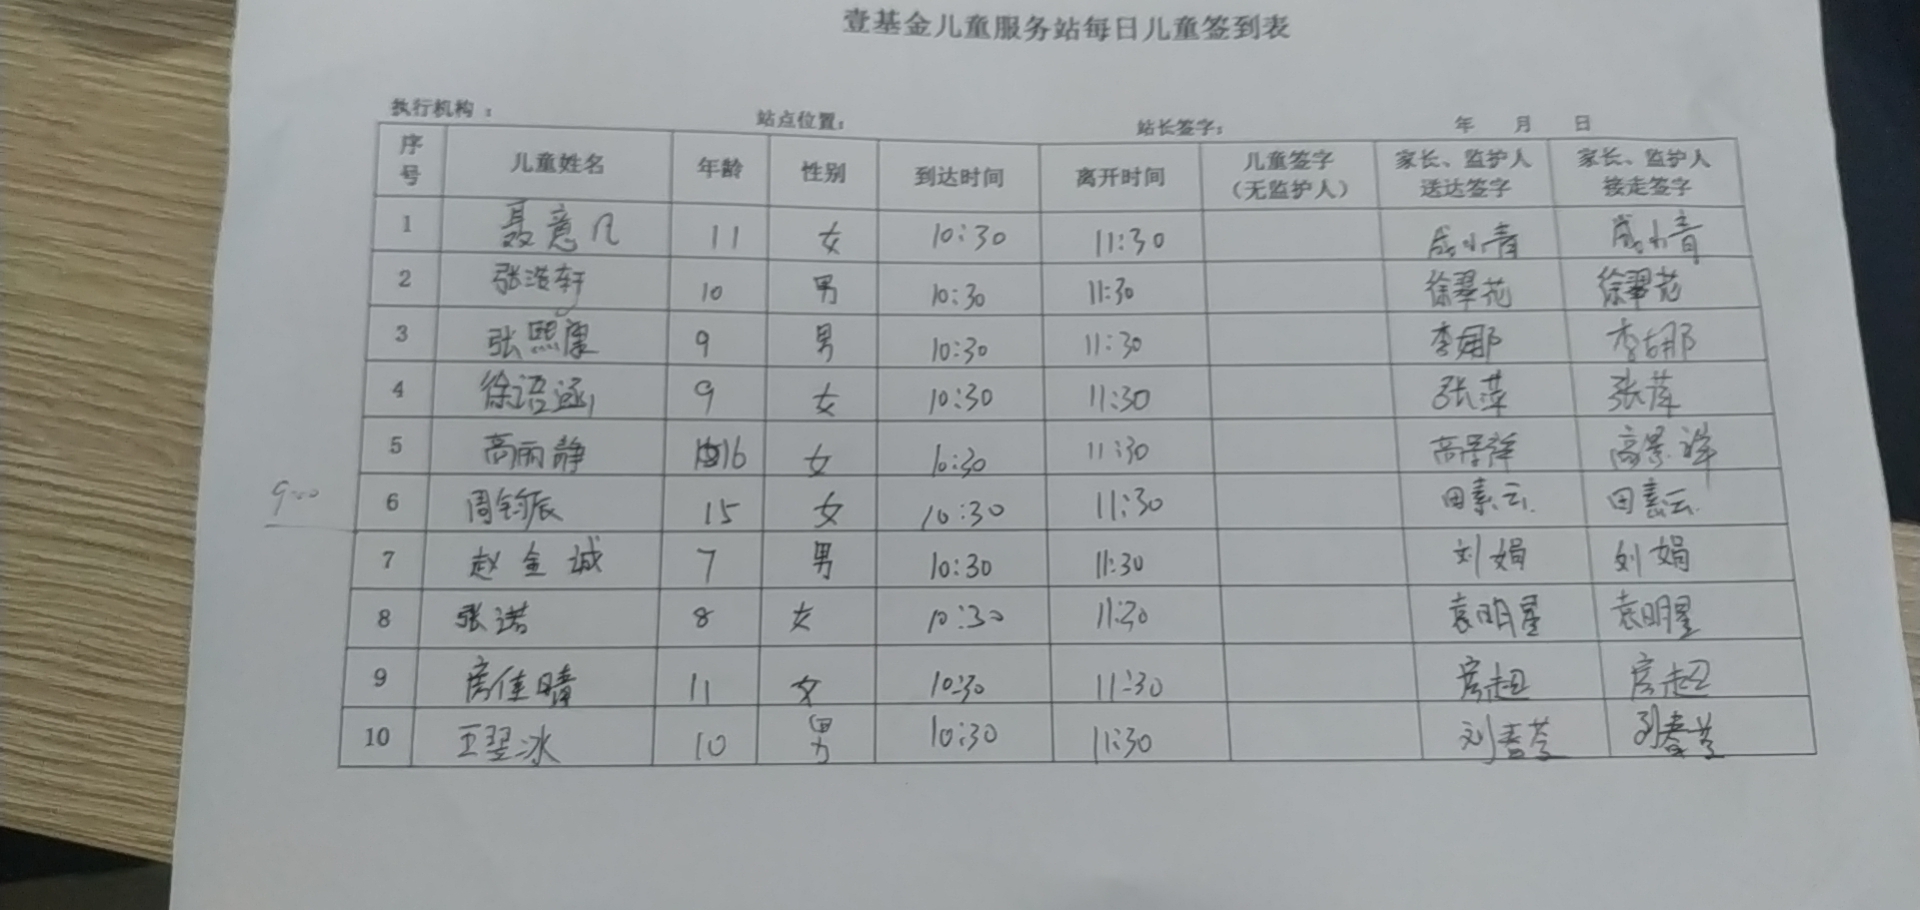 壹基金儿童服务站每日儿童签到表
执行机构： 站点位置： 站长签字： 年 月 日
序号 儿童姓名 年龄 性别 到达时间 离开时间 儿童签字（无监护人） 家长、监护人送达签字 家长、监护人接走签字
1 聂意凡 11 女 10:30 11:30 成小青 成小青
2 张浩轩 10 男 10:30 11:30 徐翠苑 徐翠苑
3 张熙康 9 男 10:30 11:30 李娜 李娜
4 徐语涵 9 女 10:30 11:30 张萍 张萍
5 高丽静 16 女 10:30 11:30 高景祥 高景祥
6 周钧辰 15 女 10:30 11:30 田素云 田素云
7 赵金诚 7 男 10:30 11:30 刘娟 刘娟
8 张诺 8 女 10:30 11:30 袁明星 袁明星
9 房佳晴 11 女 10:30 11:30 房超 房超
10 王翌冰 10 男 10:30 11:30 刘春 刘春